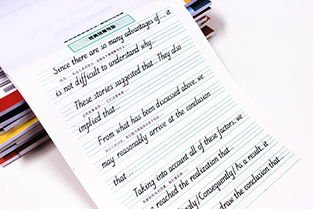 Since there are so many advantages of... it
is not difficult to understand why...
These stories suggested that... They also
implied that...
From what has been discussed above, we
may reasonably arrive at the conclusion
that...
Taking into account all of these factors, we
reached the realization that...
/Consequently/As a result, it
draw the conclusion that...